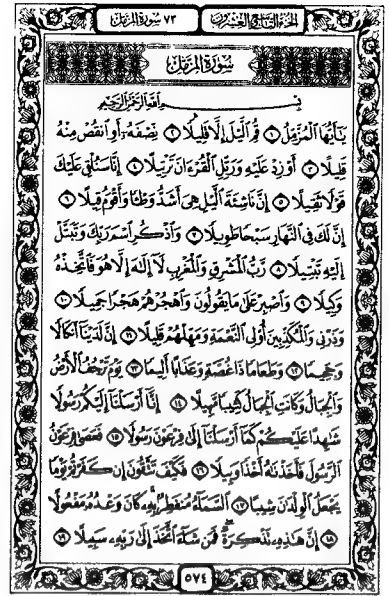 الجزء التاسع والعشرون ٧٣ سورة المزمل
سُورَةُ المُزَّمِّل
بِسْمِ اللَّهِ الرَّحْمَٰنِ الرَّحِيمِ
يَٰٓأَيُّهَا ٱلْمُزَّمِّلُ ١ قُمِ ٱلَّيْلَ إِلَّا قَلِيلًا ٢ نِّصْفَهُۥٓ أَوِ ٱنقُصْ مِنْهُ
قَلِيلًا ٣ أَوْ زِدْ عَلَيْهِ وَرَتِّلِ ٱلْقُرْءَانَ تَرْتِيلًا ٤ إِنَّا سَنُلْقِى عَلَيْكَ
قَوْلًا ثَقِيلًا ٥ إِنَّ نَاشِئَةَ ٱلَّيْلِ هِىَ أَشَدُّ وَطْـًٔا وَأَقْوَمُ قِيلًا ٦
إِنَّ لَكَ فِى ٱلنَّهَارِ سَبْحًا طَوِيلًا ٧ وَٱذْكُرِ ٱسْمَ رَبِّكَ وَتَبَتَّلْ
إِلَيْهِ تَبْتِيلًا ٨ رَّبُّ ٱلْمَشْرِقِ وَٱلْمَغْرِبِ لَآ إِلَٰهَ إِلَّا هُوَ فَٱتَّخِذْهُ
وَكِيلًا ٩ وَٱصْبِرْ عَلَىٰ مَا يَقُولُونَ وَٱهْجُرْهُمْ هَجْرًا جَمِيلًا ١٠
وَذَرْنِى وَٱلْمُكَذِّبِينَ أُو۟لِى ٱلنَّعْمَةِ وَمَهِّلْهُمْ قَلِيلًا ١١ إِنَّ لَدَيْنَآ أَنكَالًا
وَجَحِيمًا ١٢ وَطَعَامًا ذَا غُصَّةٍ وَعَذَابًا أَلِيمًا ١٣ يَوْمَ تَرْجُفُ ٱلْأَرْضُ
وَٱلْجِبَالُ وَكَانَتِ ٱلْجِبَالُ كَثِيبًا مَّهِيلًا ١٤ إِنَّآ أَرْسَلْنَآ إِلَيْكُمْ رَسُولًا
شَٰهِدًا عَلَيْكُمْ كَمَآ أَرْسَلْنَآ إِلَىٰ فِرْعَوْنَ رَسُولًا ١٥ فَعَصَىٰ فِرْعَوْنُ
ٱلرَّسُولَ فَأَخَذْنَٰهُ أَخْذًا وَبِيلًا ١٦ فَكَيْفَ تَتَّقُونَ إِن كَفَرْتُمْ يَوْمًا
يَجْعَلُ ٱلْوِلْدَٰنَ شِيبًا ١٧ ٱلسَّمَآءُ مُنفَطِرٌۢ بِهِۦ كَانَ وَعْدُهُۥ مَفْعُولًا
١٨ إِنَّ هَٰذِهِۦ تَذْكِرَةٌ فَمَن شَآءَ ٱتَّخَذَ إِلَىٰ رَبِّهِۦ سَبِيلًا ١٩
٥٧٤